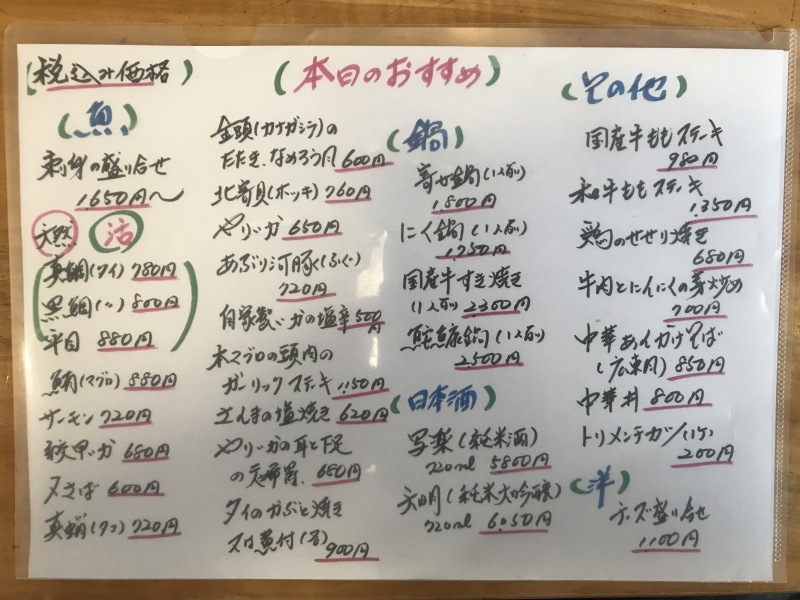 (税込み価格)
(本日のおすすめ)
(魚)
刺身の盛り合せ
1,650円〜
天然 活
真鯛(タイ) 780円
黒鯛(〃) 800円
平目 880円
鮪(マグロ) 880円
サーモン 720円
紋甲イカ 680円
〆さば 600円
真蛸(タコ) 720円
金頭(カナガシラ)の
たたき、なめろう 600円
北寄貝(ホッキ) 760円
ヤリイカ 650円
あぶり河豚(ふぐ)
720円
自家製イカの塩辛 500円
本マグロの頭肉の
ガーリックステーキ 1,150円
さんまの塩焼き 620円
ヤリイカの耳と下足
の天婦羅 680円
タイのかぶと焼き
又は煮付(有)
900円
(鍋)
寄せ鍋(1人前)
1,800円
にく鍋(1人前)
1,750円
国産牛すき焼き
(1人前) 2,300円
鮟鱇鍋(1人前)
2,500円
(日本酒)
写楽(純米酒)
720ml 5800円
(純米大吟醸)
720ml 6,050円
(その他)
国産牛ももステーキ
980円
和牛ももステーキ
1,350円
鶏のせせり焼き
680円
牛肉とにんにくの芽炒め
700円
中華あんかけそば
(広東風) 850円
中華丼 800円
トリメンチカツ(1ケ)
200円
(洋)
チーズ盛り合せ
1,100円